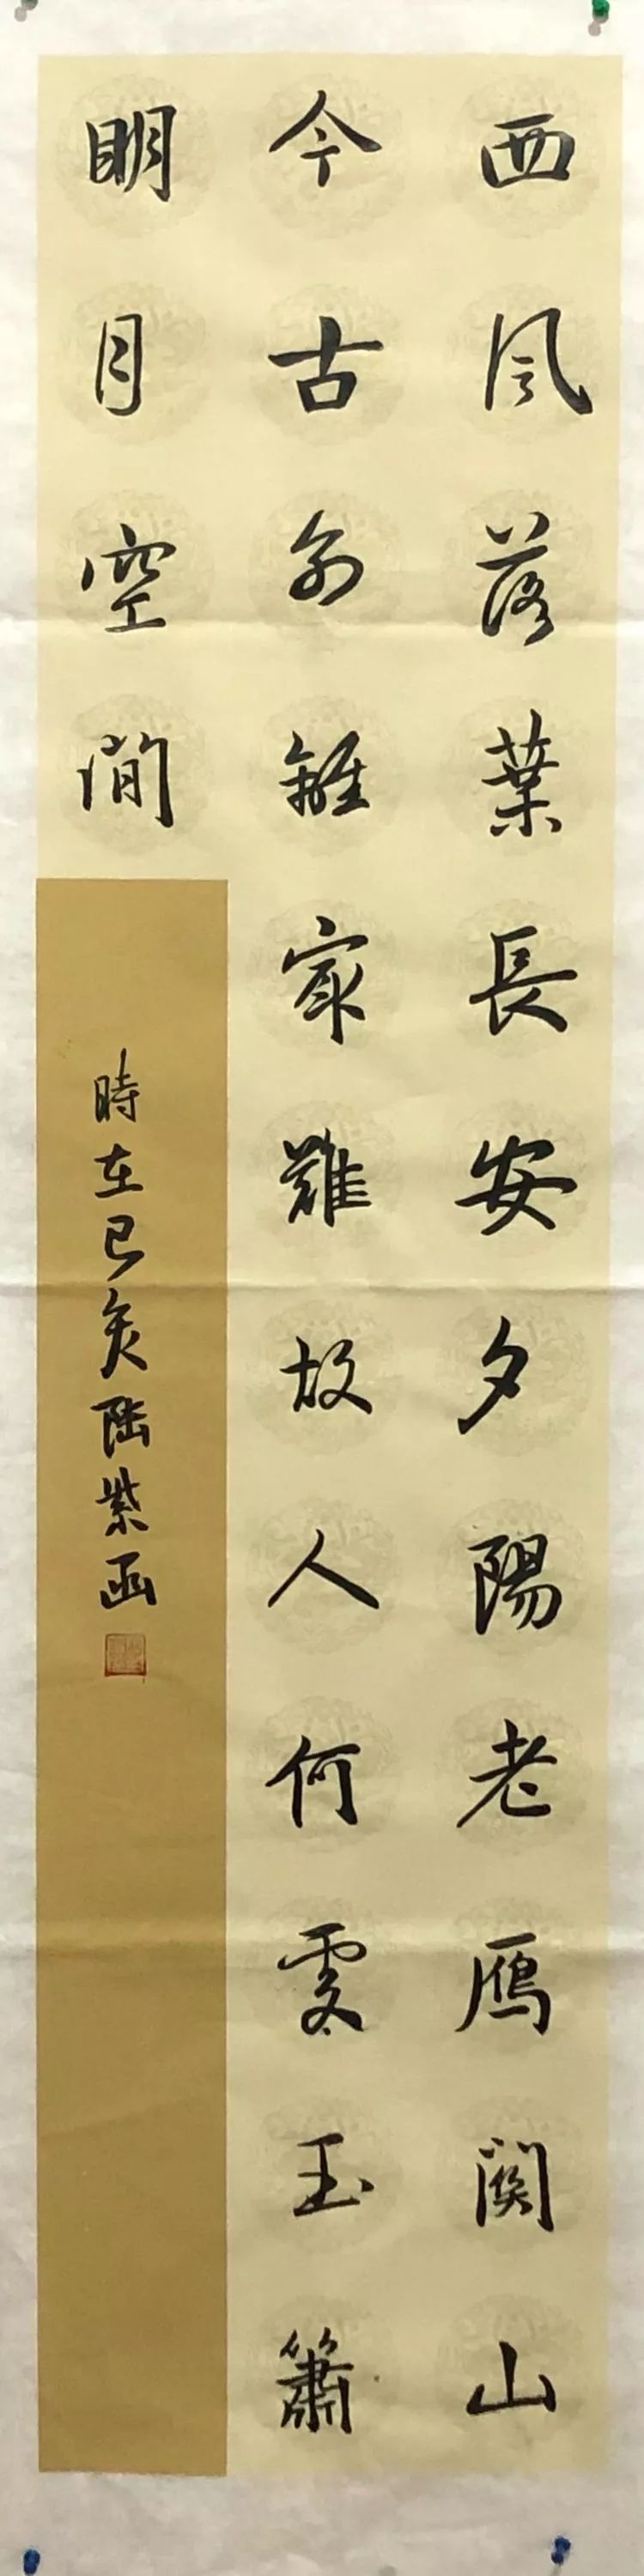 西風落葉長安夕陽老鴈關山
今古別離最難故人何處玉簫
明月空閒
時在己亥陸紫函